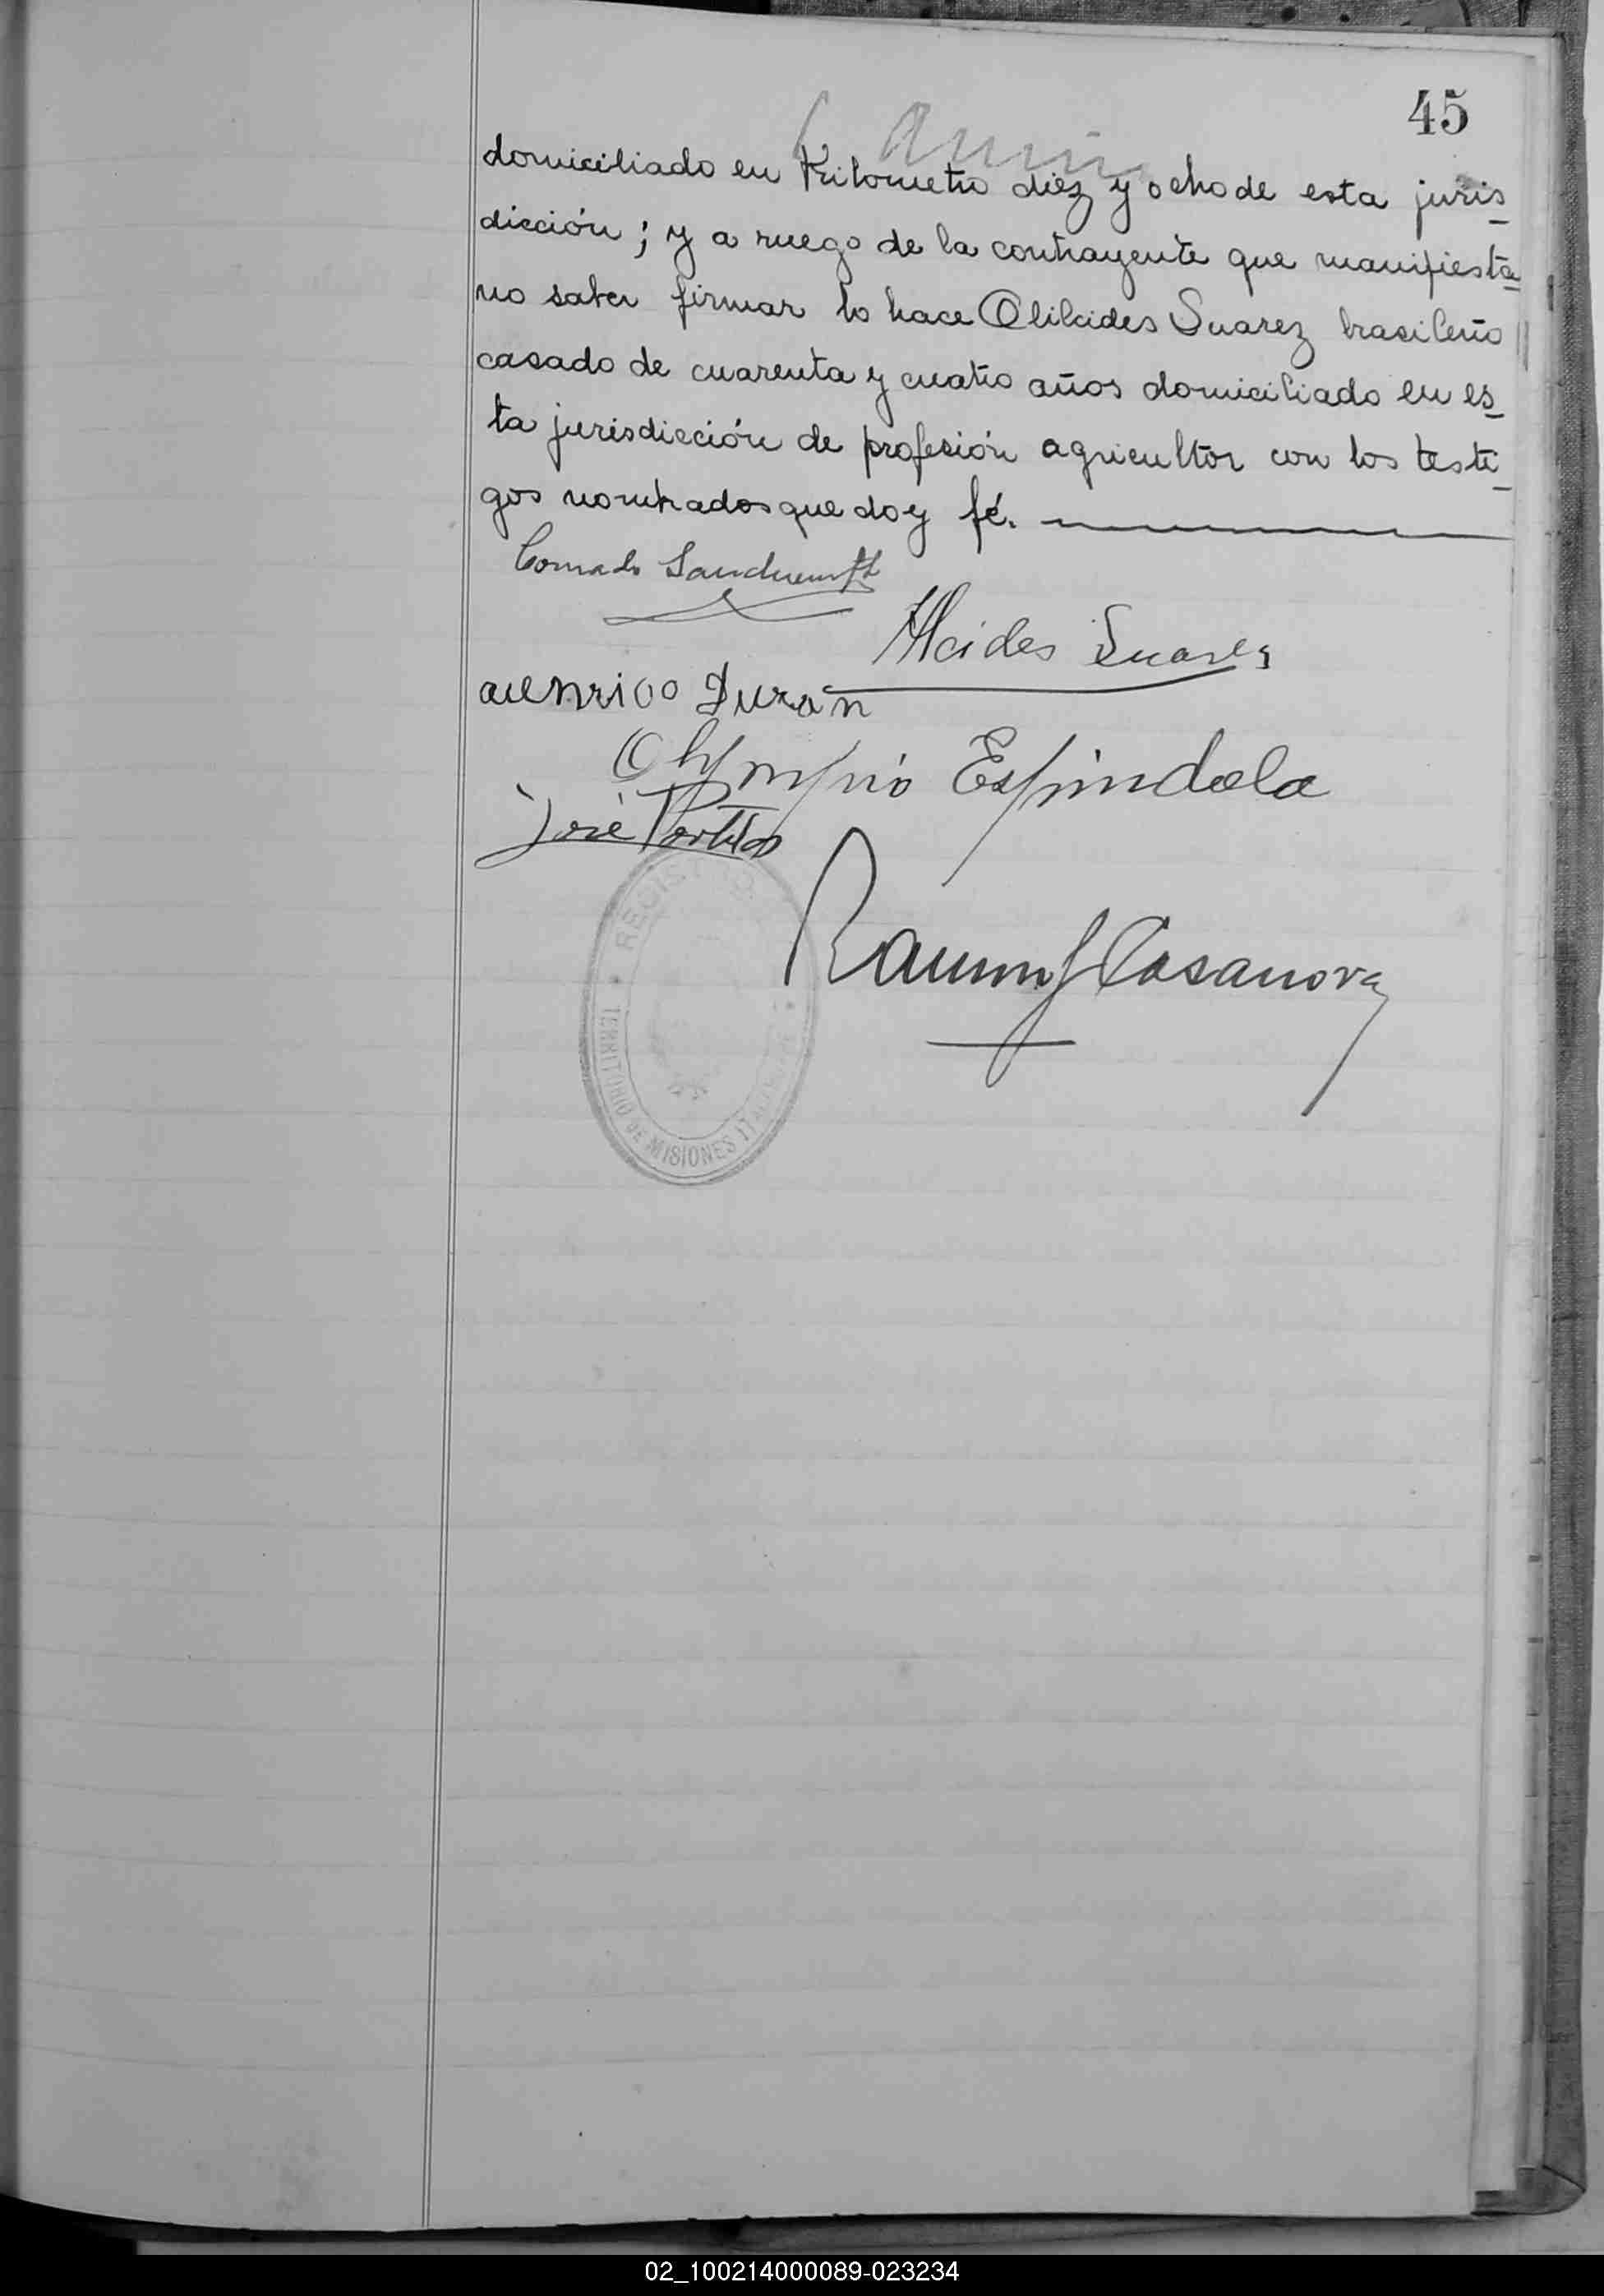 45
domiciliado en Kilometro diez y ocho de esta juris-
dicción; y a ruego de la contrayente que manifiesta
no saber firmar lo hace Olilcides Suarez brasileño
casado de cuarenta y cuatro años domiciliado en es-
ta jurisdicción de profesión agricultor con los testi-
gos nombrados que doy fé.
Conrado
Alcides Suares
Duran
Olympio Espindola
José Portillo
Ramon J Casanova
REGISTRO
TERRITORIO DE MISIONES
02_100214000089-023234